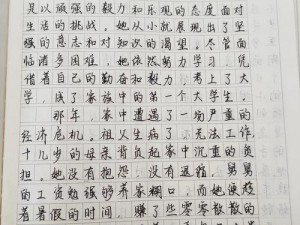 是以顽强的毅力和乐观的态度面对
生活的挑战。她从小就展现出了坚
强的意志和对知识的渴望。尽管面
临诸多困难,她依然努力学习,凭
借着自己的勤奋和毅力,考上了大
学,成了家族中的第一个大学生。
那年,家中遭遇了一场严重的
经济危机。祖父生病了,无法工作,
十几岁的母亲背负起家中沉重的负
担,她没有抱怨,没有退缩,舅舅
的工资勉强够养家糊口,而她便趁
着暑假的时间,赚了些零零散散的